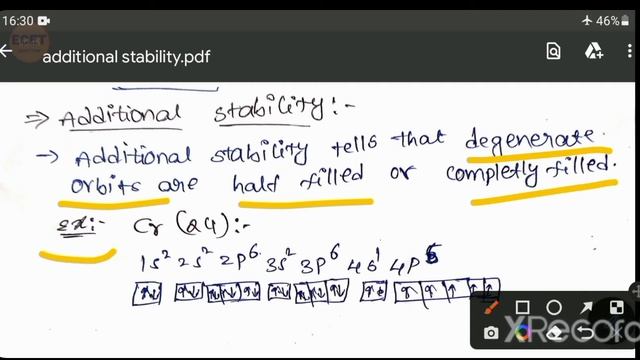 16:30 46%
ECET
additional stability.pdf
⇒ Additional stability:-
→ Additional stability tells that degenerate
orbits are half filled or completly filled.
Ex:- Cr (24):-
1s² 2s² 2p⁶ 3s² 3p⁶ 4s¹ 4p⁵
XRecor